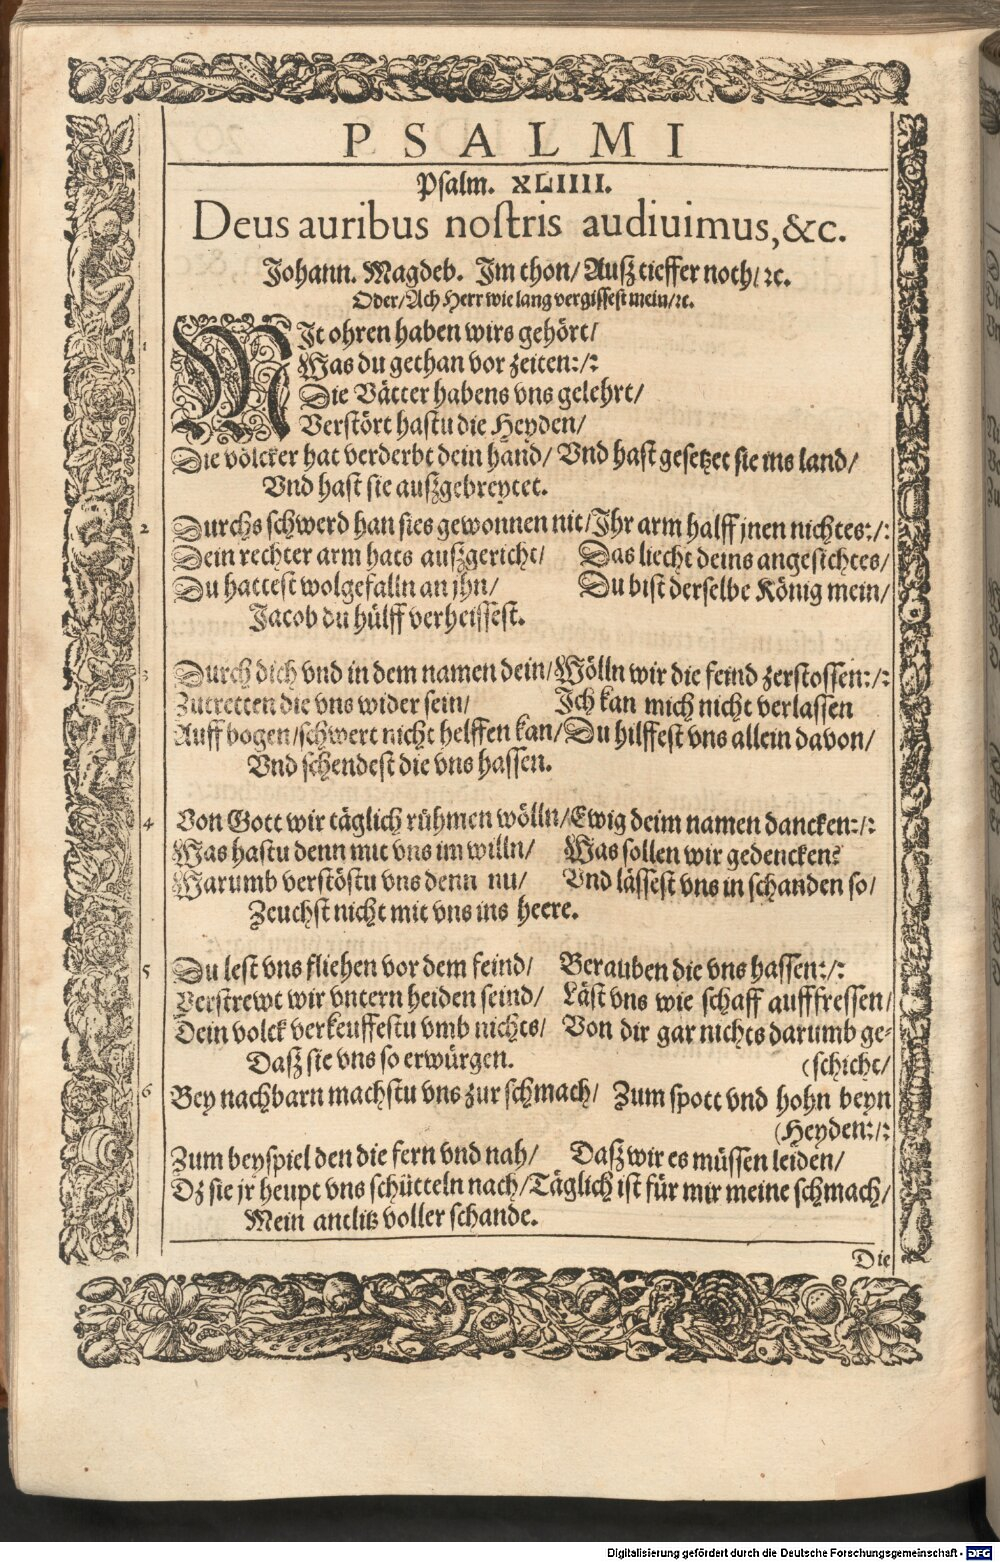 PSALMI
Psalm. XLIIII.
Deus auribus nostris audiuimus, &c.
Johann. Magdeb. Im thon/ Auß tieffer noth/ ꝛc.
Oder/ Ach Herr wie lang vergissest mein/ ꝛc.
1 MIt ohren haben wirs gehört/
Was du gethan vor zeiten:/:
Die Vätter habens vns gelehrt/
Verstört hastu die Heyden/
Die völcker hat verderbt dein hand/ Vnd hast gesetzet sie ins land/
Vnd hast sie außgebreytet.
2 Durchs schwerd han sies gewonnen nit/ Ihr arm halff jnen nichtes:/:
Dein rechter arm hats außgericht/ Das liecht deins angesichtes/
Du hattest wolgefalln an jhn/ Du bist derselbe König mein/
Jacob du hülff verheissest.
3 Durch dich vnd in dem namen dein/ Wölln wir die feind zerstossen:/:
Zutretten die vns wider sein/ Ich kan mich nicht verlassen
Auff bogen/ schwert nicht helffen kan/ Du hilffest vns allein davon/
Vnd schendest die vns hassen.
4 Von Gott wir täglich rühmen wölln/ Ewig deim namen dancken:/:
Was hastu denn mit vns im willn/ Was sollen wir gedencken?
Warumb verstöstu vns denn nu/ Vnd lässest vns in schanden so/
Zeuchst nicht mit vns ins heere.
5 Du lest vns fliehen vor dem feind/ Berauben die vns hassen:/:
Verstrewt wir vntern heiden seind/ Läst vns wie schaff auffressen/
Dein volck verkeuffestu vmb nichts/ Von dir gar nichts darumb ge-
Daß sie vns so erwürgen. (schicht/
6 Bey nachbarn machstu vns zur schmach/ Zum spott vnd hohn beyn
(Heyden:/:
Zum beyspiel den die fern vnd nah/ Daß wir es müssen leiden/
Dz sie jr heupt vns schütteln nach/ Täglich ist für mir meine schmach/
Mein antlitz voller schande.
Die
Digitalisierung gefördert durch die Deutsche Forschungsgemeinschaft - DFG